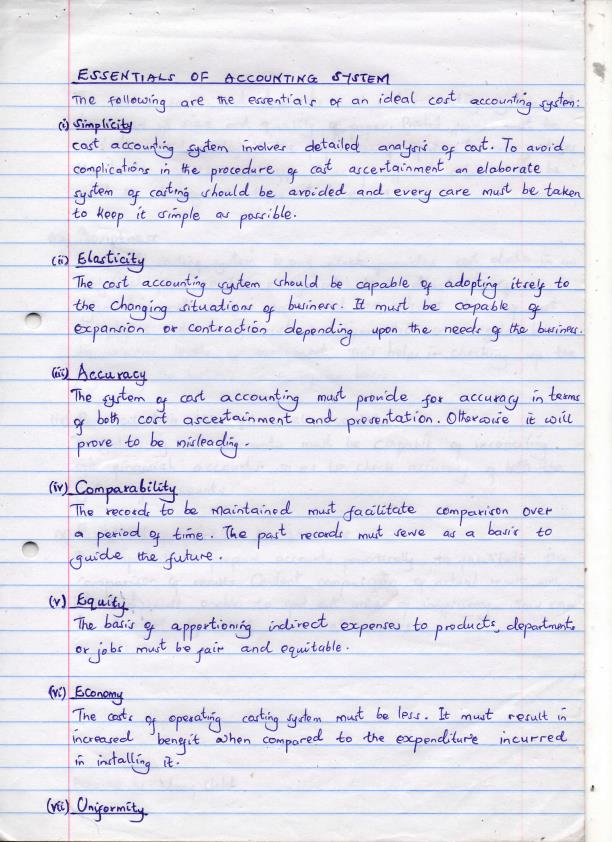 ESSENTIALS OF ACCOUNTING SYSTEM
The following are the essentials of an ideal cost accounting system:
(i) Simplicity
Cost accounting system involves detailed analysis of cost. To avoid
complications in the procedure of cost ascertainment an elaborate
system of costing should be avoided and every care must be taken
to keep it simple as possible.
(ii) Elasticity
The cost accounting system should be capable of adopting itself to
the changing situations of business. It must be capable of
expansion or contraction depending upon the needs of the business.
(iii) Accuracy
The system of cost accounting must provide for accuracy in terms
of both cost ascertainment and presentation. Otherwise it will
prove to be misleading.
(iv) Comparability
The records to be maintained must facilitate comparison over
a period of time. The past records must serve as a basis to
guide the future.
(v) Equity
The basis of apportioning indirect expenses to products, departments
or jobs must be fair and equitable.
(vi) Economy
The costs of operating costing system must be less. It must result in
increased benefit when compared to the expenditure incurred
in installing it.
(vii) Uniformity